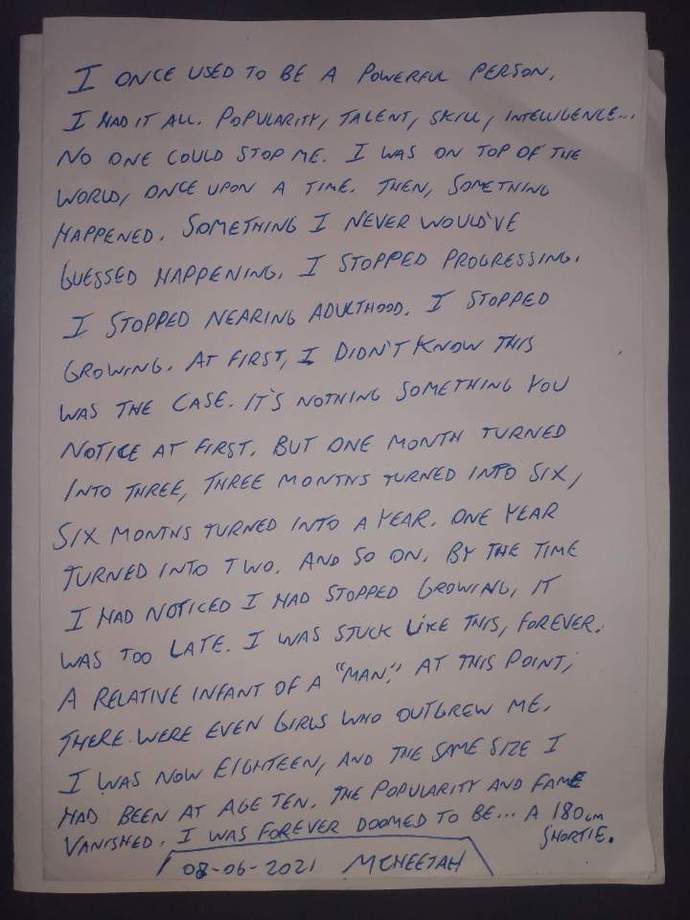 I ONCE USED TO BE A POWERFUL PERSON.
I HAD IT ALL. POPULARITY, TALENT, SKILL, INTELLIGENCE...
NO ONE COULD STOP ME. I WAS ON TOP OF THE
WORLD, ONCE UPON A TIME. THEN, SOMETHING
HAPPENED. SOMETHING I NEVER WOULD'VE
GUESSED HAPPENING. I STOPPED PROGRESSING.
I STOPPED NEARING ADULTHOOD. I STOPPED
GROWING. AT FIRST, I DIDN'T KNOW THIS
WAS THE CASE. IT'S NOTHING SOMETHING YOU
NOTICE AT FIRST. BUT ONE MONTH TURNED
INTO THREE, THREE MONTHS TURNED INTO SIX,
SIX MONTHS TURNED INTO A YEAR. ONE YEAR
TURNED INTO TWO. AND SO ON. BY THE TIME
I HAD NOTICED I HAD STOPPED GROWING, IT
WAS TOO LATE. I WAS STUCK LIKE THIS, FOREVER.
A RELATIVE INFANT OF A "MAN." AT THIS POINT,
THERE WERE EVEN GIRLS WHO OUTGREW ME.
I WAS NOW EIGHTEEN, AND THE SAME SIZE I
HAD BEEN AT AGE TEN. THE POPULARITY AND FAME
VANISHED. I WAS FOREVER DOOMED TO BE... A 180cm
SHORTIE.
08-06-2021 MCHEETAH